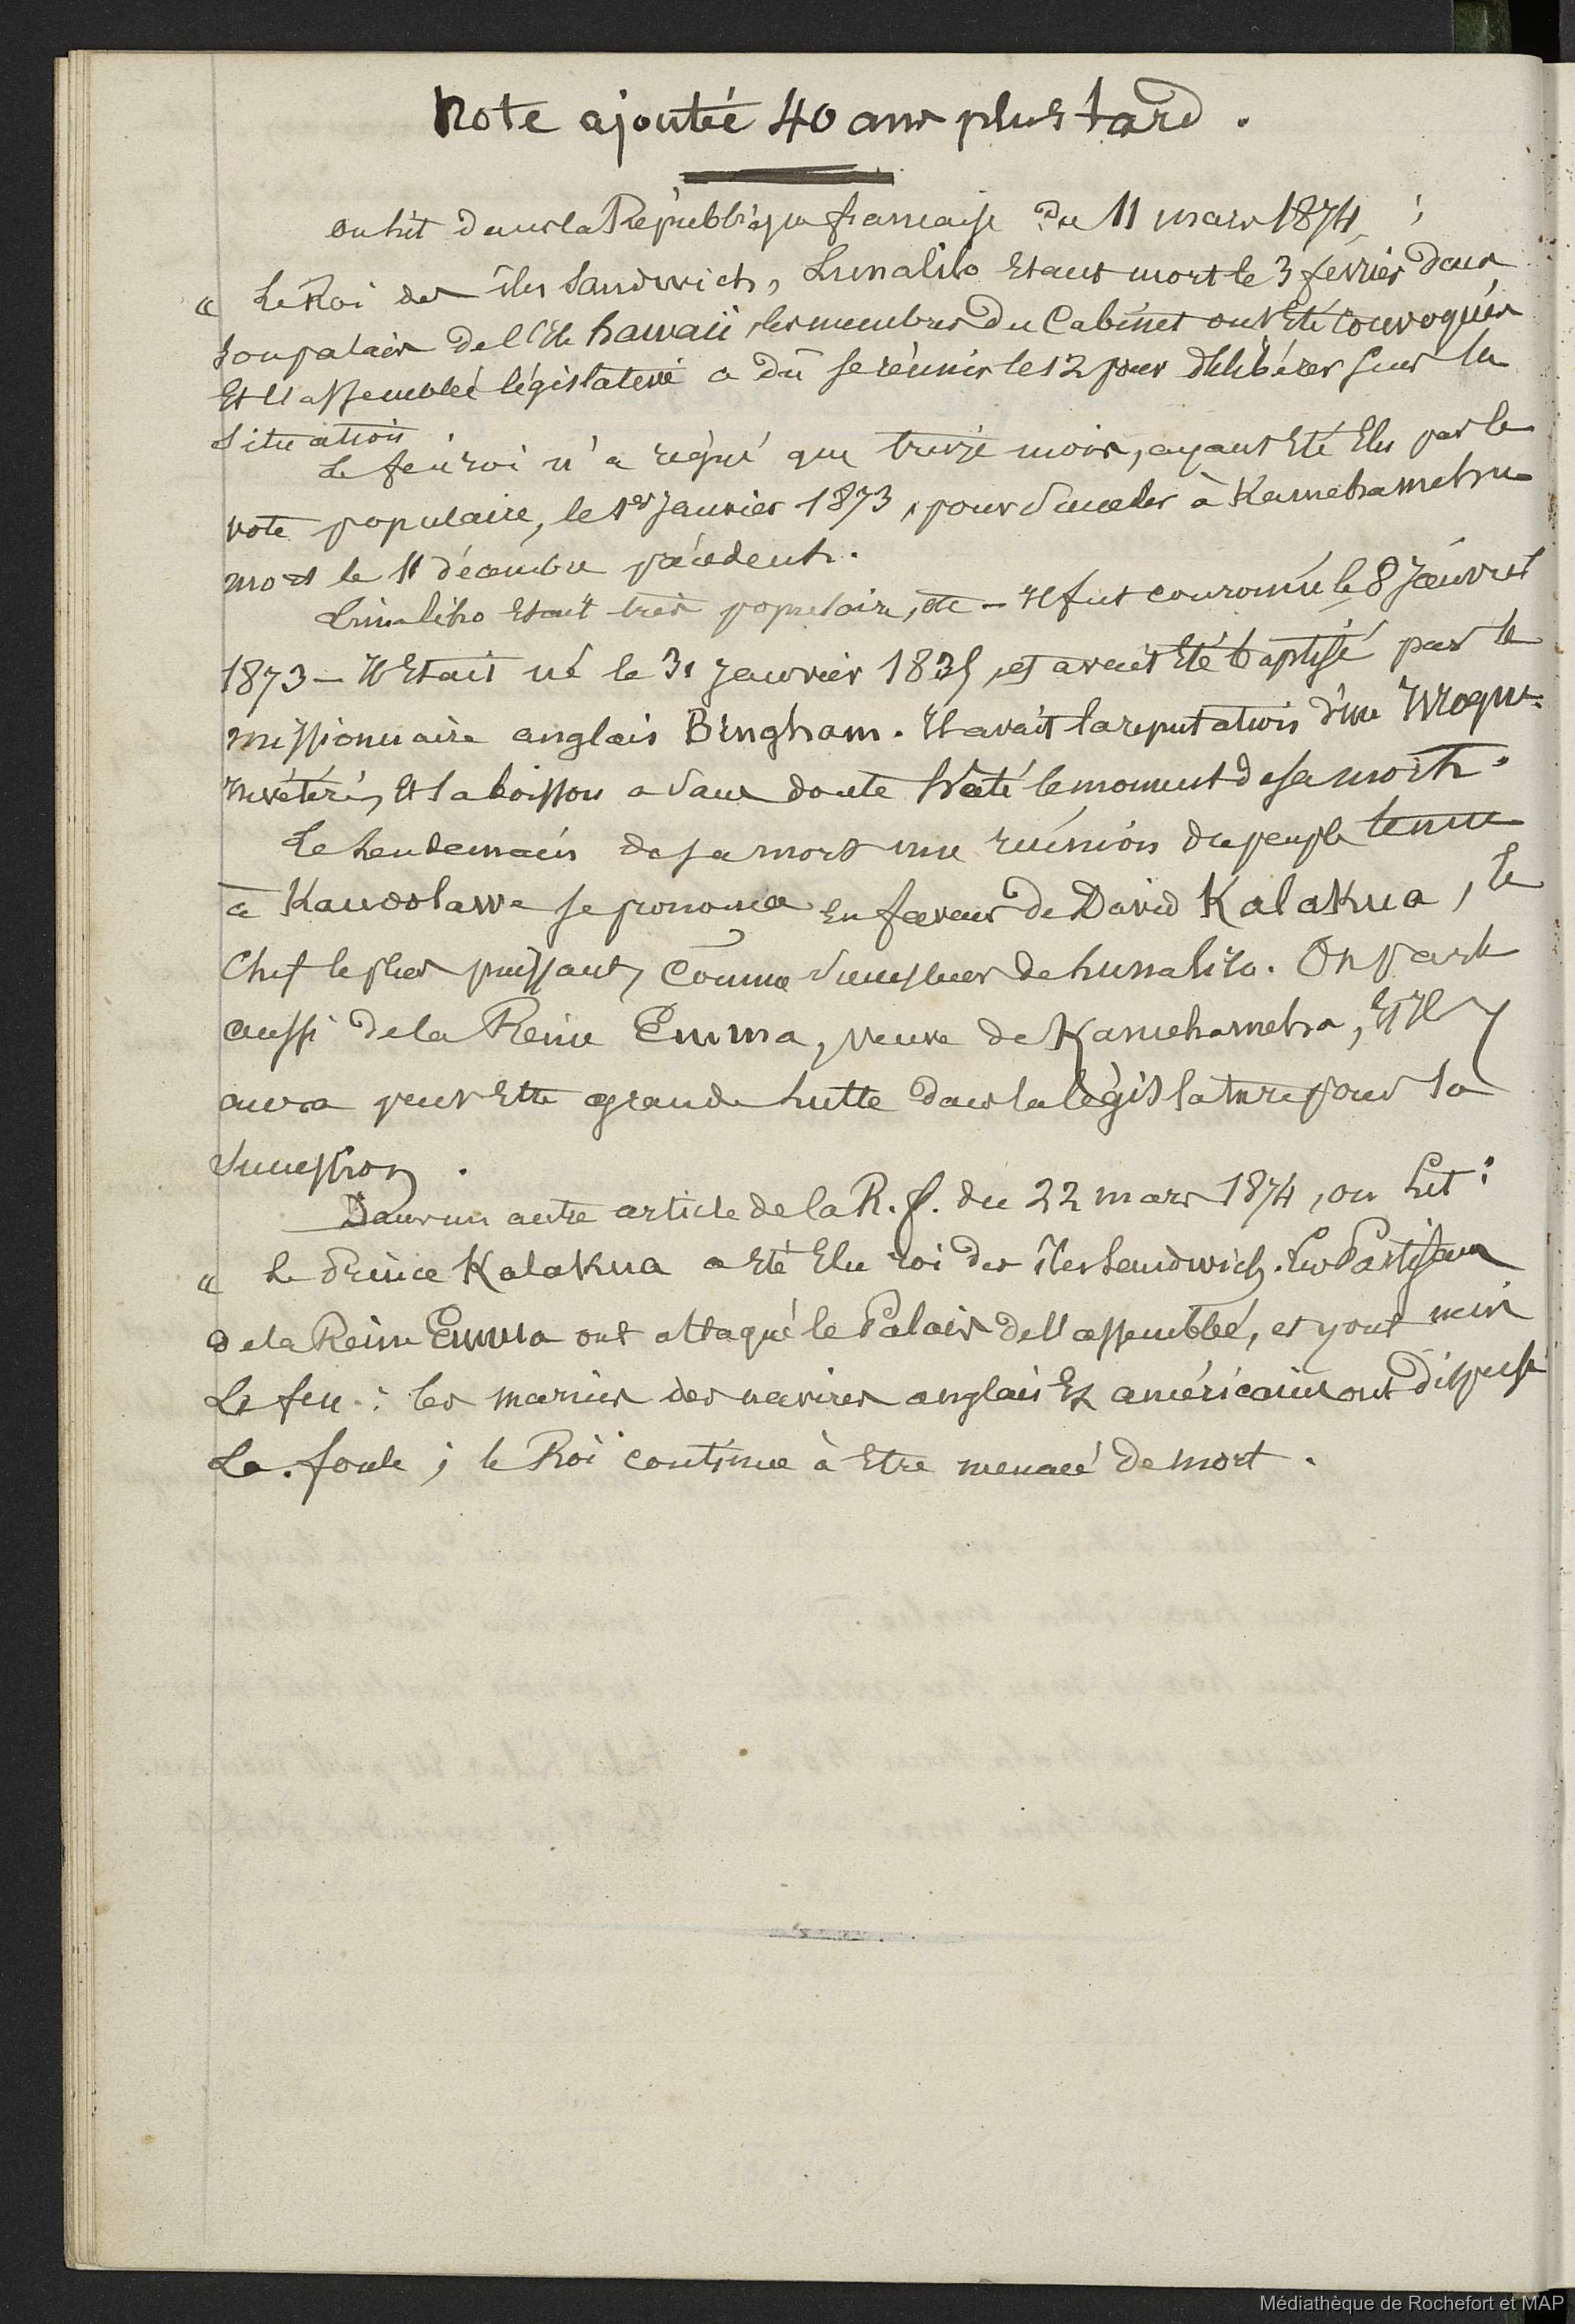 Note ajoutée 40 ans plus tard.
on lit dans la République française du 11 mars 1874 :
" Le Roi des îles Sandwich, Lunalilo etant mort le 3 fevrier dans
son palais de l'Ile hawaii, les membres du Cabinet ont été convoqués
Et l'assemblée législative a dû se réunir le 12 pour délibérer sur la
situation
Le feu roi n'a régné que treize mois, ayant Eté Elu par le
vote populaire, le 1er Janvier 1873, pour succeder à Kamehameha
mort le 11 décembre précédent.
Lunalilo Etait très populaire, etc - Il fut couronné le 8 Janvier
1873 - Il Etait né le 31 Janvier 1835, et avait Eté baptisé par le
missionnaire anglais Bingham. Il avait la reputation d'un Ivrogne
invétéré, Et la boisson a sans doute hâté le moment de sa mort.
Le lendemain de sa mort une réunion du peuple tenue
à se prononça en faveur de David Kalakua, le
Chef le plus puissant, comme successeur de Lunalilo. On parle
aussi de la Reine Emma, veuve de Kamehameha, Et Il y
aura peut Etre grande lutte dans la législature pour la
succession.
Dans un autre article de la R. f. du 22 mars 1874, on lit :
" le Prince Kalakua a Eté Elu roi des îles Sandwich. Les Partisans
de la Reine Emma ont attaqué le Palais de l'assemblée, et y ont mis
Le feu : les marins des navires anglais Et américains ont dispersé
La foule ; le Roi continue à Etre menacé de mort.
Médiathèque de Rochefort et MAP